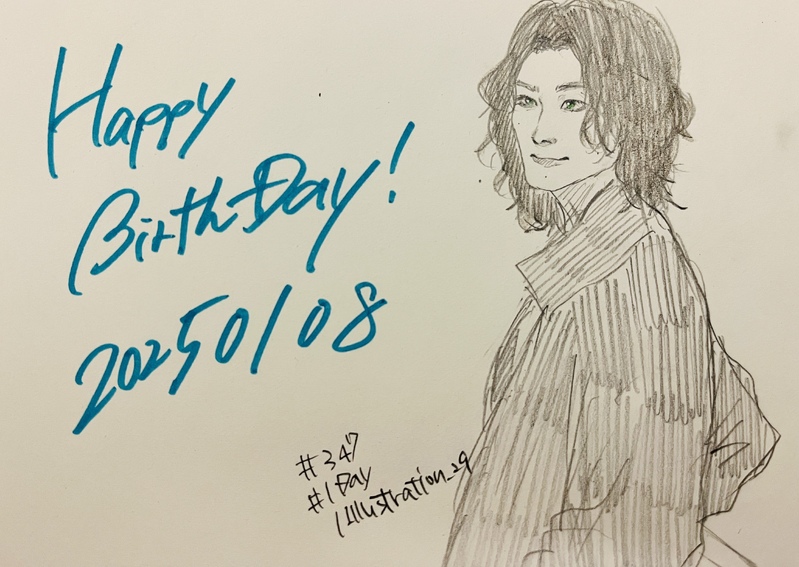 Happy
BirthDay!
20250108
#347
#1Day
1Illustration_29